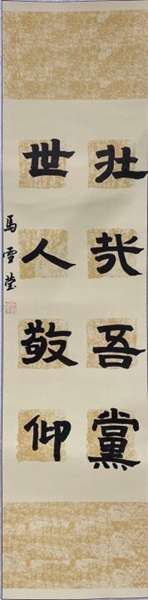 壮哉吾黨
世人敬仰
馬雪瑩